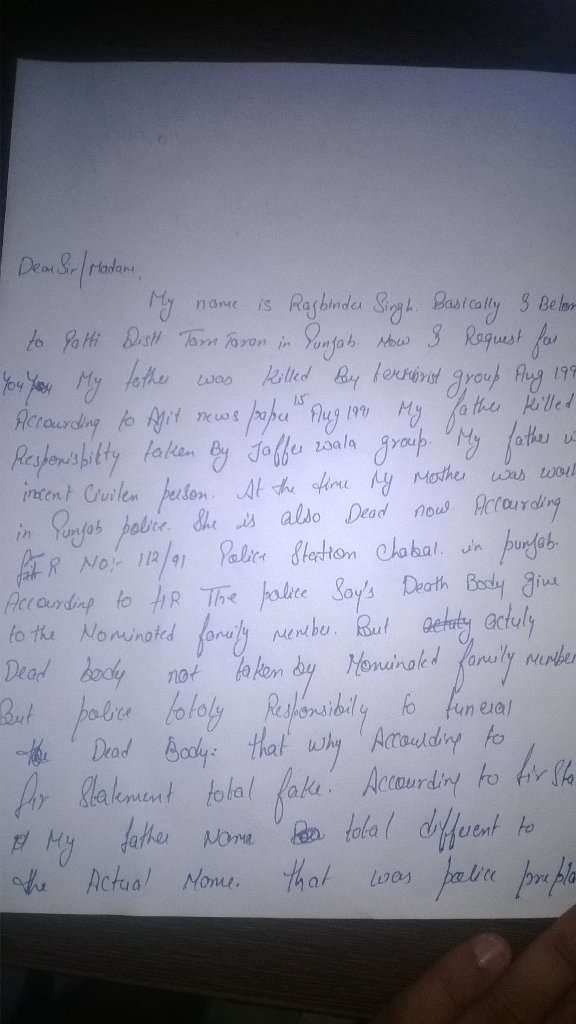 Dear Sir/Madam,
My name is Rajbinder Singh. Basically I Belon
to Patti Distt Tarn Taran in Punjab. Now I Request for
You My father was killed By terrorist group Aug 199
Accourding to Ajit news paper 15 Aug 1991 My father killed
Responisbilty taken By Jaffer wala group. My father
inocent Civilen person. At the time My Mother was work
in Punjab police. She is also Dead now. Accourding
R No:- 112/91 Police Station Chabal. in punjab.
Accourding to FIR The police Say's Death Body give
to the Nominated family member. But actuly actuly
Dead body not taken by Nominated family member
But police totoly Responsibily to funeral
the Dead Body: that why Accourding to
fir Statement total fake. Accourding to fir Sta
My father Name total different to
the Actual Name. that was police prepla